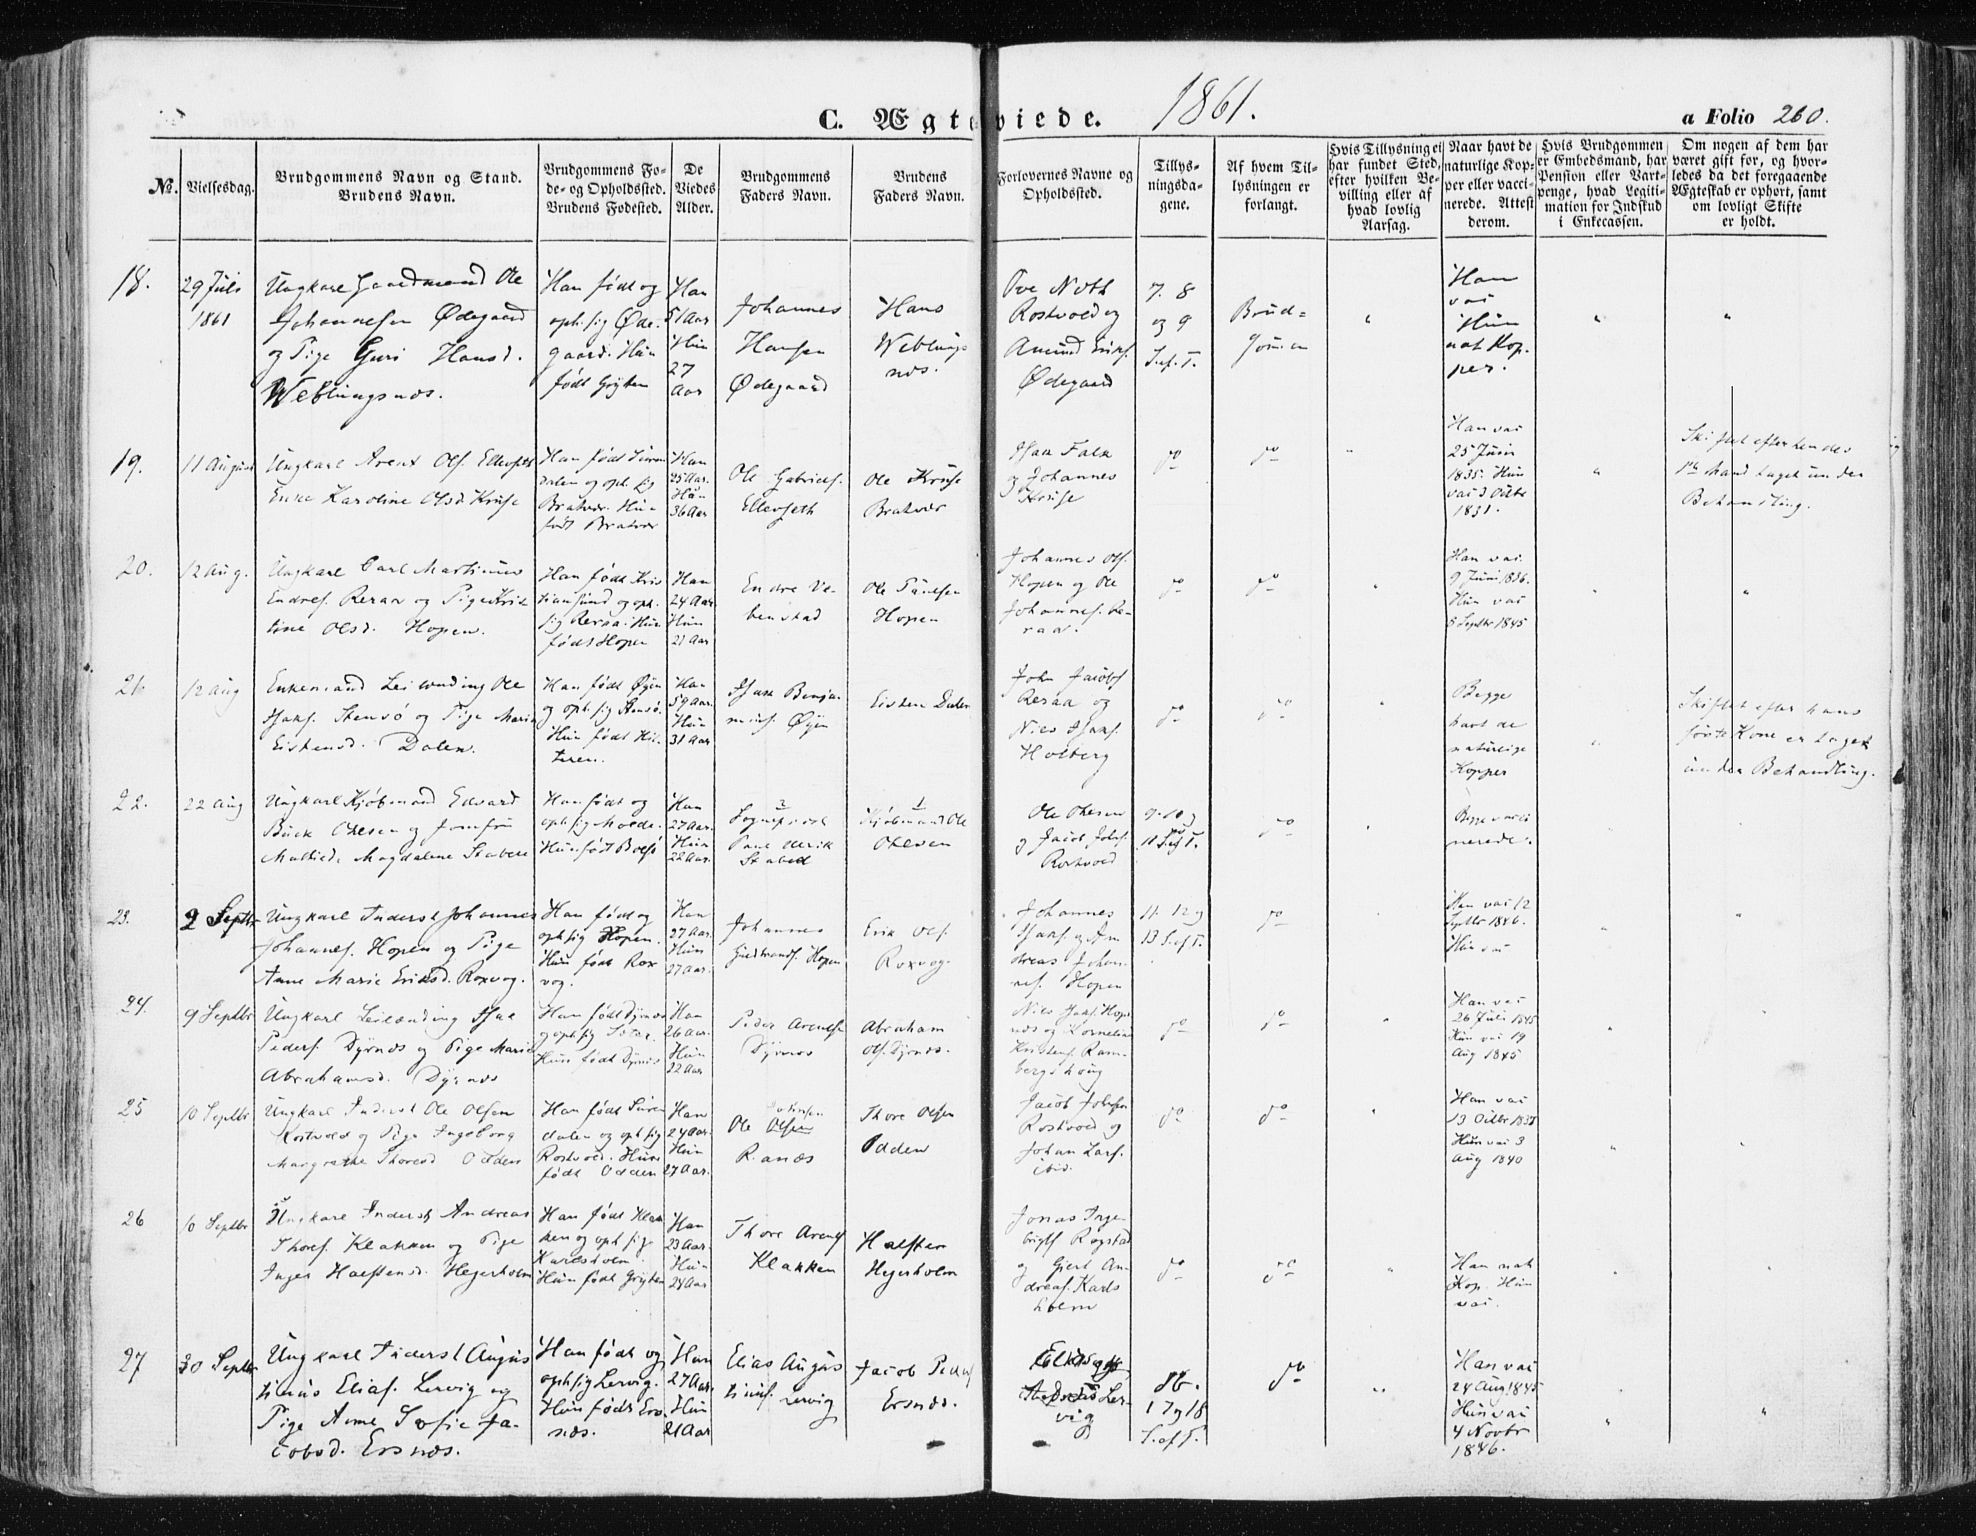 C. Ægteviede. 1861. a Folio 260.
No. Vielsesdag. Brudgommens Navn og Stand. Brudens Navn. Brudgommens Fode- og Opholdssted. Brudens Fødested. De Viedes Alder. Brudgommens Faders Navn. Brudens Faders Navn. Forlovernes Navne og Opholdssted. Tillysningsdagene. Af hvem Tillysningen er forlangt. Hvis Tillysning ei har fundet Sted, efter hvilken Bevilling eller af hvad lovlig Aarsag. Naar havt de naturlige Kopper eller vaccinerede. Attest derom. Hvis Brudgommen er Embedsmand, har Pension eller Vartpenge, hvad Legitimation for Indskud i Enkecassen. Om nogen af dem har været gift før, og hvorledes da det foregaaende Ægteskab er ophørt, samt om lovligt Skifte er holdt.
18. 29 Juli 1861
Ungkarl Gaardmand Ole
Johannesen Ødegaard
og Pige Guri Hansd.
Weblungsnæs.
Han født og
oph. sig Øde-
gaard. Hun
født Gryten
Han
51 Aar
Hun
27
Aar
Johannes
Hansen
Ødegaard
Hans
Weblungs
næs.
Ove Noth
Rostvold og
Amund Eriks.
Ødegaard
7. 8
og 9
S. ef. T.
Brud=
gommen
"
Han
vac
Hun
nat Kop.
per.
"
"
19. 11 August
Ungkarl Arent Ols. Ellevseth
Enke Karoline Olsd. Kruse
Han født Suren
dalen og oph. sig
Bratvær. Hun
født Bratvær
Han
25 Aar.
Hun
36 Aar
Ole Gabriels.
Ellevseth
Ole Kruse
Bratvær
Isak Falk
og Johannes
Kruse
do
do
"
Han vac
25 Juni
1835. Hun
vac 3 Octbr
1831.
"
Skiftet efter hendes
1ste Mand taget under
Behandling.
20. 12 Aug.
Ungkarl Carl Martinus
Endres. Reraa og Pige Kris
tine Olsd. Hopen.
Han født Kris
tiansund og oph.
sig Reraa. Hun
født Hopen
Han
24 Aar
Hun
21 Aar
Endre Ve-
benstad
Ole Paulsen
Hopen
Johannes Ols.
Hopen og Ole
Johannes. Re-
raa.
do
do
"
Han vac.
9 Juni 1836.
Hun vac
5 Septbr 1845
"
"
21. 12 Aug
Enkemand Leilending Ole
Isaks. Stensø og Pige Marie
Eistensd. Dalen.
Han født Øyen
og oph. sig Stensø.
Hun født Hit-
teren.
Han
59 Aar.
Hun
31 Aar
Isak Benja-
mins. Øyen
Eisten Dalen
John Jacobs
Reraa og
Niels Isaks.
Holberg
do
do
"
Begge
havt de
naturlige
Kopper
"
Skiftet efter hans
første Kone er taget
under Behandling.
22. 22 Aug
Ungkarl Kjøbmand Edvard
Buck Olesen og Jomfru
Magdalene Stabell
Han født og
oph. sig Molde.
Hun født Bolsø
Han
27 Aar.
Hun
22 Aar.
2
Sogneprest
Stabell
1
Kjøbmand Ole
Olesen
Ole Olesen
og Jacob Johs.
Rostvold
9. 10 og
11 S. ef T.
do
"
Begge vacci
nerede.
23. 2 Septbr
Ungkarl Inderst Johannes
Johannes. Hopen og Pige
Anne Marie Eriksd. Roxvog.
Han født og
oph. sig Hopen.
Hun født Rox
vog.
Han
27 Aar.
Hun
27 Aar.
Johannes
Gudmunds. Hopen
Erik Ols.
Roxvog.
Johannes
Isaks. og An
dreas Johan-
nes. Hopen
11. 12 og
13 S. ef T.
do
"
Han vac 12
Septbr 1846.
Hun vac
"
"
24. 9 Septbr
Ungkarl Leilending Isak
Peders. Dyrnæs og Pige Marie
Abrahamsd. Dyrnæs
Han født Dyrnæs
og oph. sig
Hun født Dyrnæs
Han
26 Aar.
Hun
22 Aar
Peder Arents.
Dyrnæs
Abraham
Ols. Dyrnæs.
Niels Isaks. Hops
næs og Kornelius
Kristens. Ram-
bergshoug
do
do
"
Han vac
26 Juli 1845
Hun vac 19
Aug 1845
"
25 10 Septbr
Ungkarl Inderst Ole Olsen
Rostvold og Pige Ingeborg
Margrethe Thoresd Odden
Han født Suren
dalen og oph. sig
Rostvold. Hun
født Odden
Han
24 Aar.
Hun
27 Aar.
Ole Olsen
Ranæs
Thore Olsen
Odden
Jacob Johnsen
Rostvold og
Johan Lars.
ibid.
do
do
"
Han vac
13 Octbr 1837
Hun vac 3
Aug 1840
"
"
26 10 Septbr
Ungkarl Inderst Andreas
Thores. Klakken og Pige
Inger Halstensd. Hegerholm
Han født Klak
ken og oph. sig
Karlsholm
Hun født Gryten
Han
23 Aar.
Hun
24 Aar
Thore Arents
Klakken
Halsten
Hegerholm
Jonas Inge
brigts Rogstad
og Giert An-
dreas. Karls
holm
do
do
"
Han nat
Kop. Hun
vac.
"
"
27 30 Septbr
Ungkarl Inderst Augus
tinus Elias. Lervig og
Pige Anne Sofie Ja-
cobsd. Ersnæs.
Han født og
oph. sig Lervig.
Hun født Ers
næs.
Han
27 Aar.
Hun
21 Aar
Elias Augus
tinus. Lervig
Jacob Peders
Ersnæs.
Elias og
Ler-
vig
16.
17 og 18
S. ef T.
do
"
Han vac
24 Aug 1845
Hun vac
4 Novbr
1846.
"
"